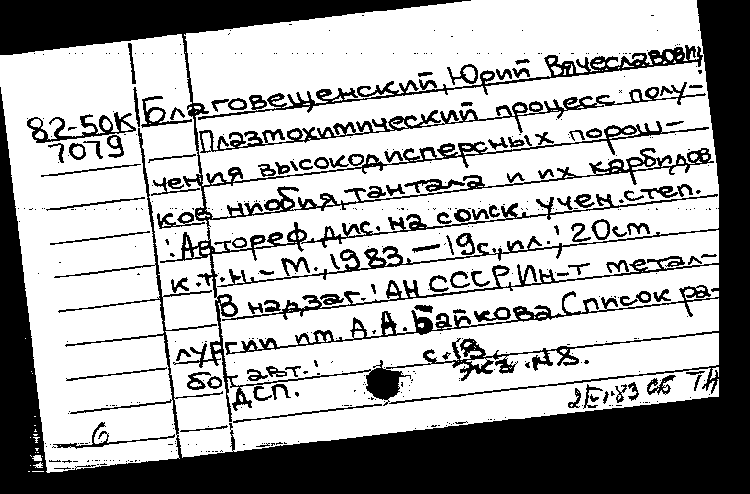 82-50К
7079
Благовещенский, Юрий Вячеславович
Плазмохимический процесс полу-
чения высокодисперсных порош-
ков ниобия, тантала и их карбидов
: Автореф. дис. на соиск. учен. степ.
к.т.н. - М., 1983. - 19 с., ил.; 20 см.
В надзаг.: АН СССР, Ин-т метал-
лургии им. А.А. Байкова. Список ра-
бот авт.: с. 18.
ДСП. экз. № 8.
83 СБ ТН
6